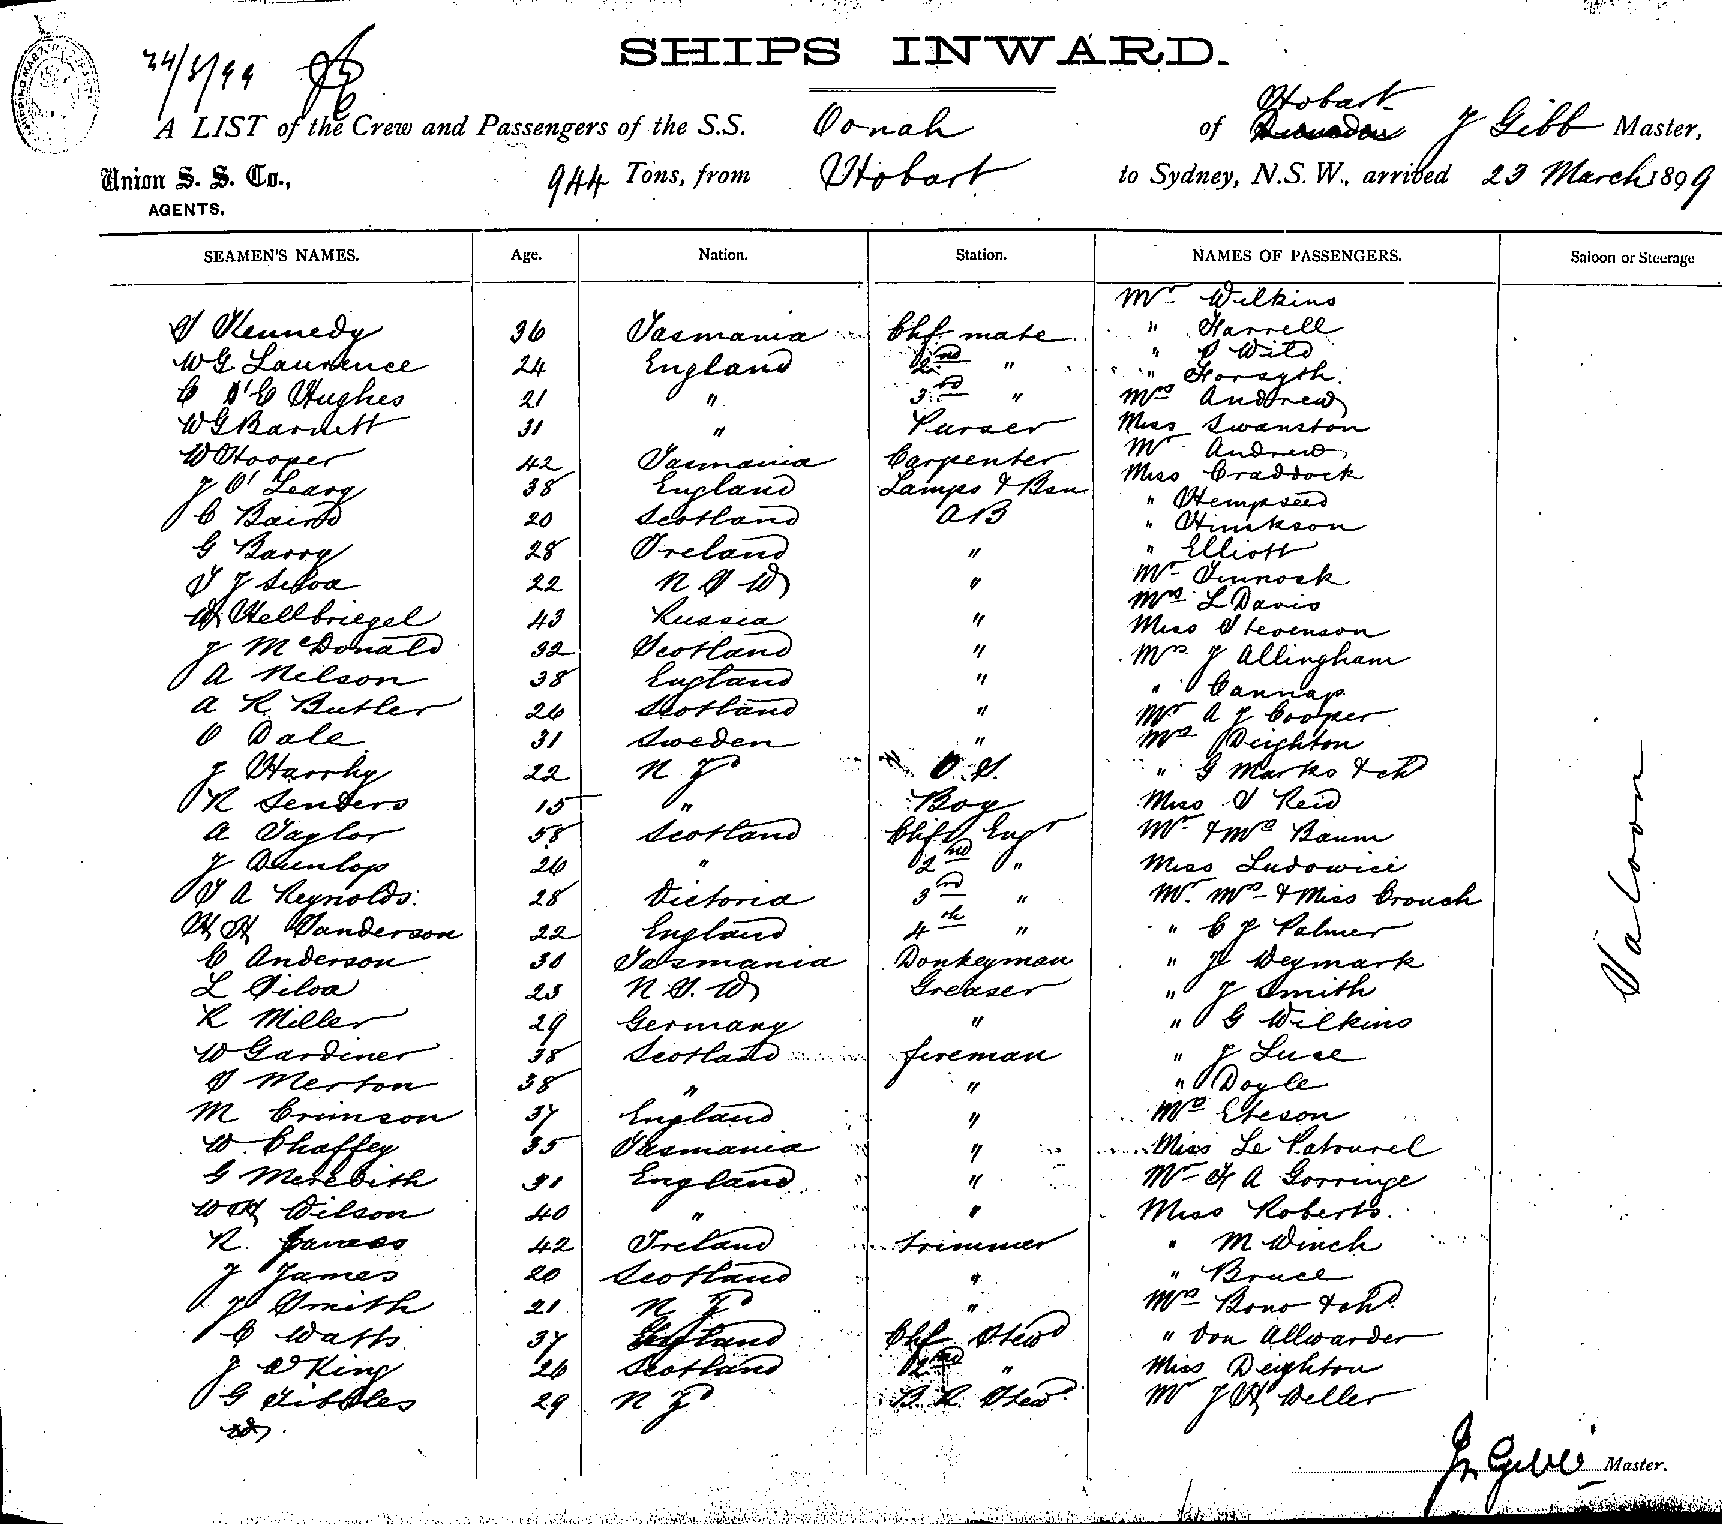 24/3/99
SHIPS INWARD.
A LIST of the Crew and Passengers of the S.S. Oonah of Hobart J Gibb Master,
Union S. S. Co., AGENTS. 944 Tons, from Hobart to Sydney, N.S.W., arrived 23 March 1899
SEAMEN'S NAMES. Age. Nation. Station. NAMES OF PASSENGERS. Saloon or Steerage
Mr Wilkins
S Kennedy 36 Tasmania Chf mate " Farrell
WG Laurence 24 England 2nd " " Wild
" Forsyth.
C Hughes 21 " 3rd " Mrs Andrew
WG Barnett 31 " Purser Miss Swanston
W Hooper 42 Tasmania Carpenter Mr Andrew
J O'Leary 38 England Lamps & Bsn Miss Craddock
C Baird 20 Scotland AB " Hempseed
G Barry 28 Ireland " " Hinkson
" Elliott
T J Silva 22 N S W " Mr Tinnock
W Hellbriegel 43 Russia " Mrs L Davis
J McDonald 32 Scotland " Miss Stevenson
A Nelson 38 England " Mrs J Allingham
A R Butler 26 Scotland " " Cannap
O Dale 31 Sweden " Mr A J Cooper
Mrs Deighton
J Harrhy 22 N Zd O.S. " G Marks & chd
R Senders 15 " Boy Miss S Reid
A Taylor 58 Scotland Chf Engr Mr & Mrs Baum
J Dunlop 26 " 2nd " Miss Ludowici
T A Reynolds. 28 Victoria 3rd " Mr. Mrs & Miss Crouch
H H Sanderson 22 England 4th " " C J Palmer
C Anderson 30 Tasmania Donkeyman " J Weymark
L Silva 23 N.S.W Greaser " J Smith
R Miller 29 Germany " " G Wilkins
W Gardiner 38 Scotland fireman " J Luse
S Merton 38 " " " Doyle
M Crimson 37 England " Mrs Eteson
W Chaffey 35 Tasmania " Miss Le Patourel
G Meredith 31 England " Mr F A Gorringe
W H Wilson 40 " " Miss Roberts.
R. James 42 Ireland trimmer " M Winch
J James 20 Scotland " " Bruce
J Smith 21 N Zd " Mrs Bono & chd.
C Watts 37 England Chf Stewd " Von Allwarder
J W King 26 Scotland 2nd " Miss Deighton
G Tibbles 29 N Zd B.R. Stewd Mr J H Weller
Saloon
Jn Gibb Master.